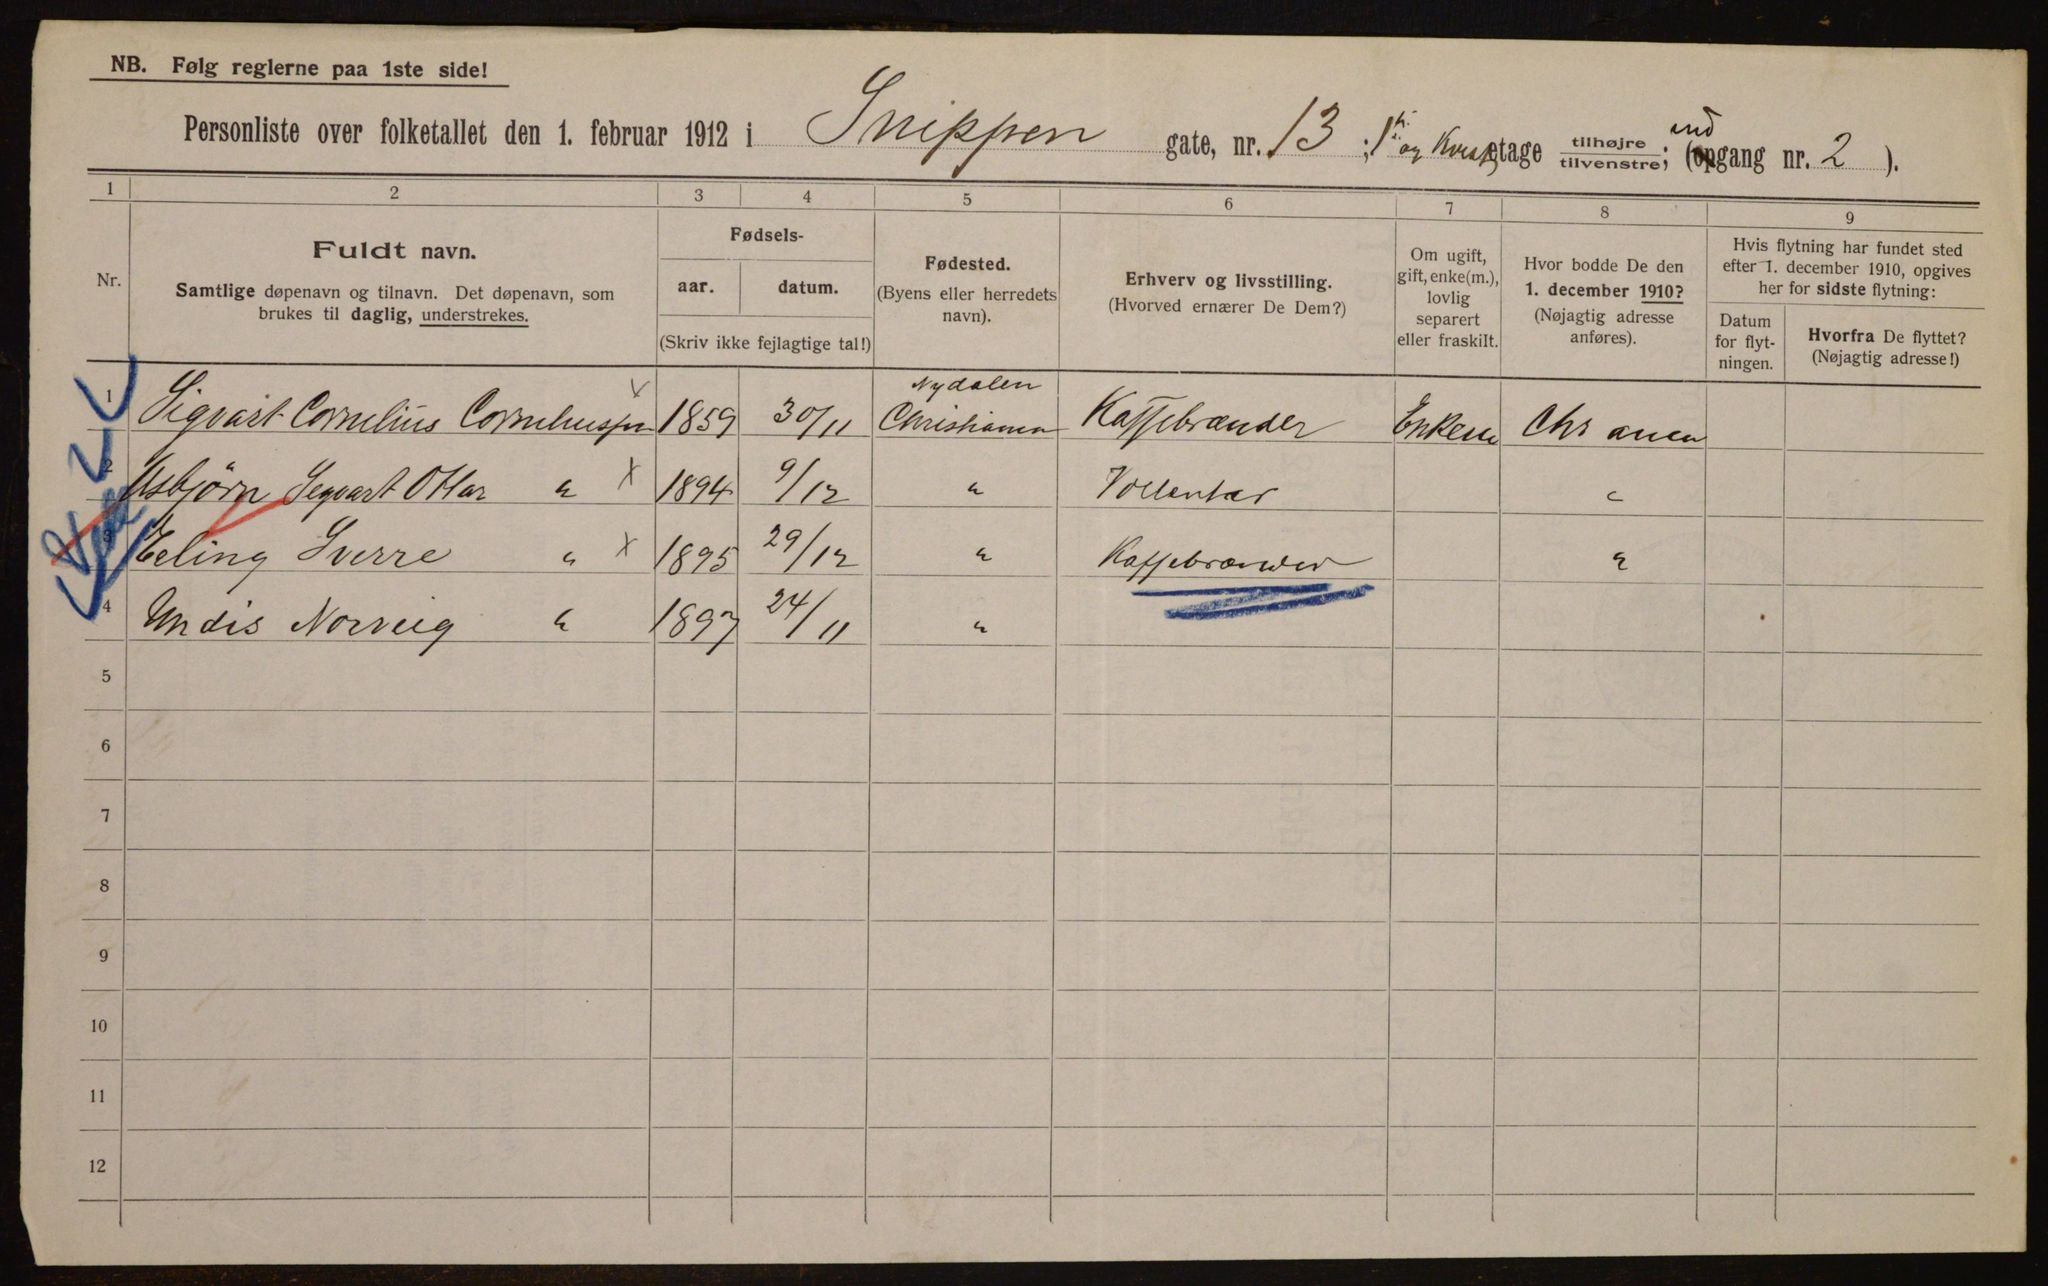 NB. Følg reglerne paa 1ste side!
Personliste over folketallet den 1. februar 1912 i Snippen gate, nr. 13 ; 1ste og Kvist etage tilhøjre / tilvenstre; (opgang nr. 2 ).
1 2 3 4 5 6 7 8 9
Nr.
Fuldt navn.
Samtlige døpenavn og tilnavn. Det døpenavn, som
brukes til daglig, understrekes.
Fødsels-
aar. datum.
(Skriv ikke fejlagtige tal!)
Fødested.
(Byens eller herredets
navn).
Erhverv og livsstilling.
(Hvorved ernærer De Dem?)
Om ugift,
gift, enke(m.),
lovlig
separert
eller fraskilt.
Hvor bodde De den
1. december 1910?
(Nøjagtig adresse
anføres).
Hvis flytning har fundet sted
efter 1. december 1910, opgives
her for sidste flytning:
Datum
for flyt-
ningen.
Hvorfra De flyttet?
(Nøjagtig adresse!)
Nydalen
1 Sigvart Cornelius Corneliussen 1859 30/11 Christiania Kaffebrænder Enkem Chr ania
2 Asbjørn Segvart Ottar " 1894 9/12 " Vollentær "
3 Eeling Sverre " 1895 29/12 " Kaffebrænder "
4 Undis Norveig " 1897 24/11 "
5
6
7
8
9
10
11
12